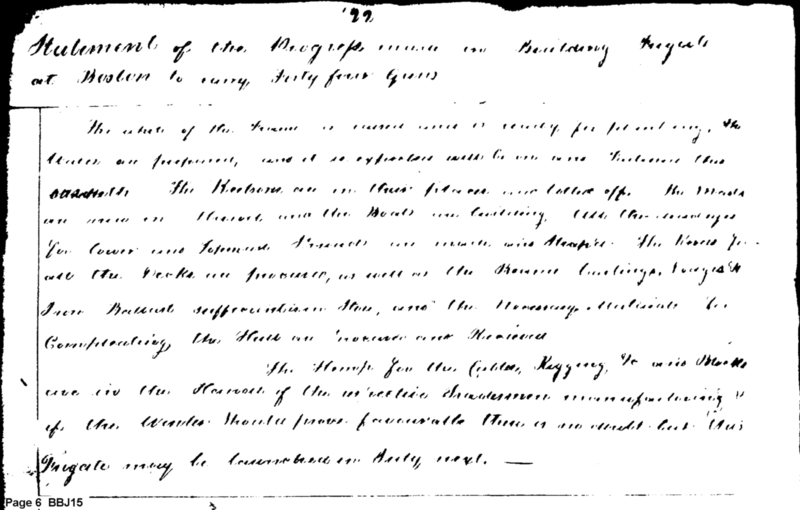 22
Statement of the Progress made in Building Frigate
at Boston to carry, Forty four Guns
The whole of the Frame is raised and is ready for planking, the
Wales are prepared, and it is expected will be on and fastened this
The Keelsons are in their places and bolted off. The Masts
are now in hand and the Boats are building. All the
for lower and Topmast Shrouds are made and The Knees for
all the Decks are procured, as well as the Beams Carlings, Ledges &c
Iron Ballast sufficient in Store, and the necessary Materials for
Compleating the Hull are procured and Received
The Hemp for the Cables, Rigging, &c and Blocks
are in the Hands of the Tradesmen manufacturing &
if the Winter should prove favourable there is no doubt but this
Frigate may be launched in July next. —
Page 6 BBJ15